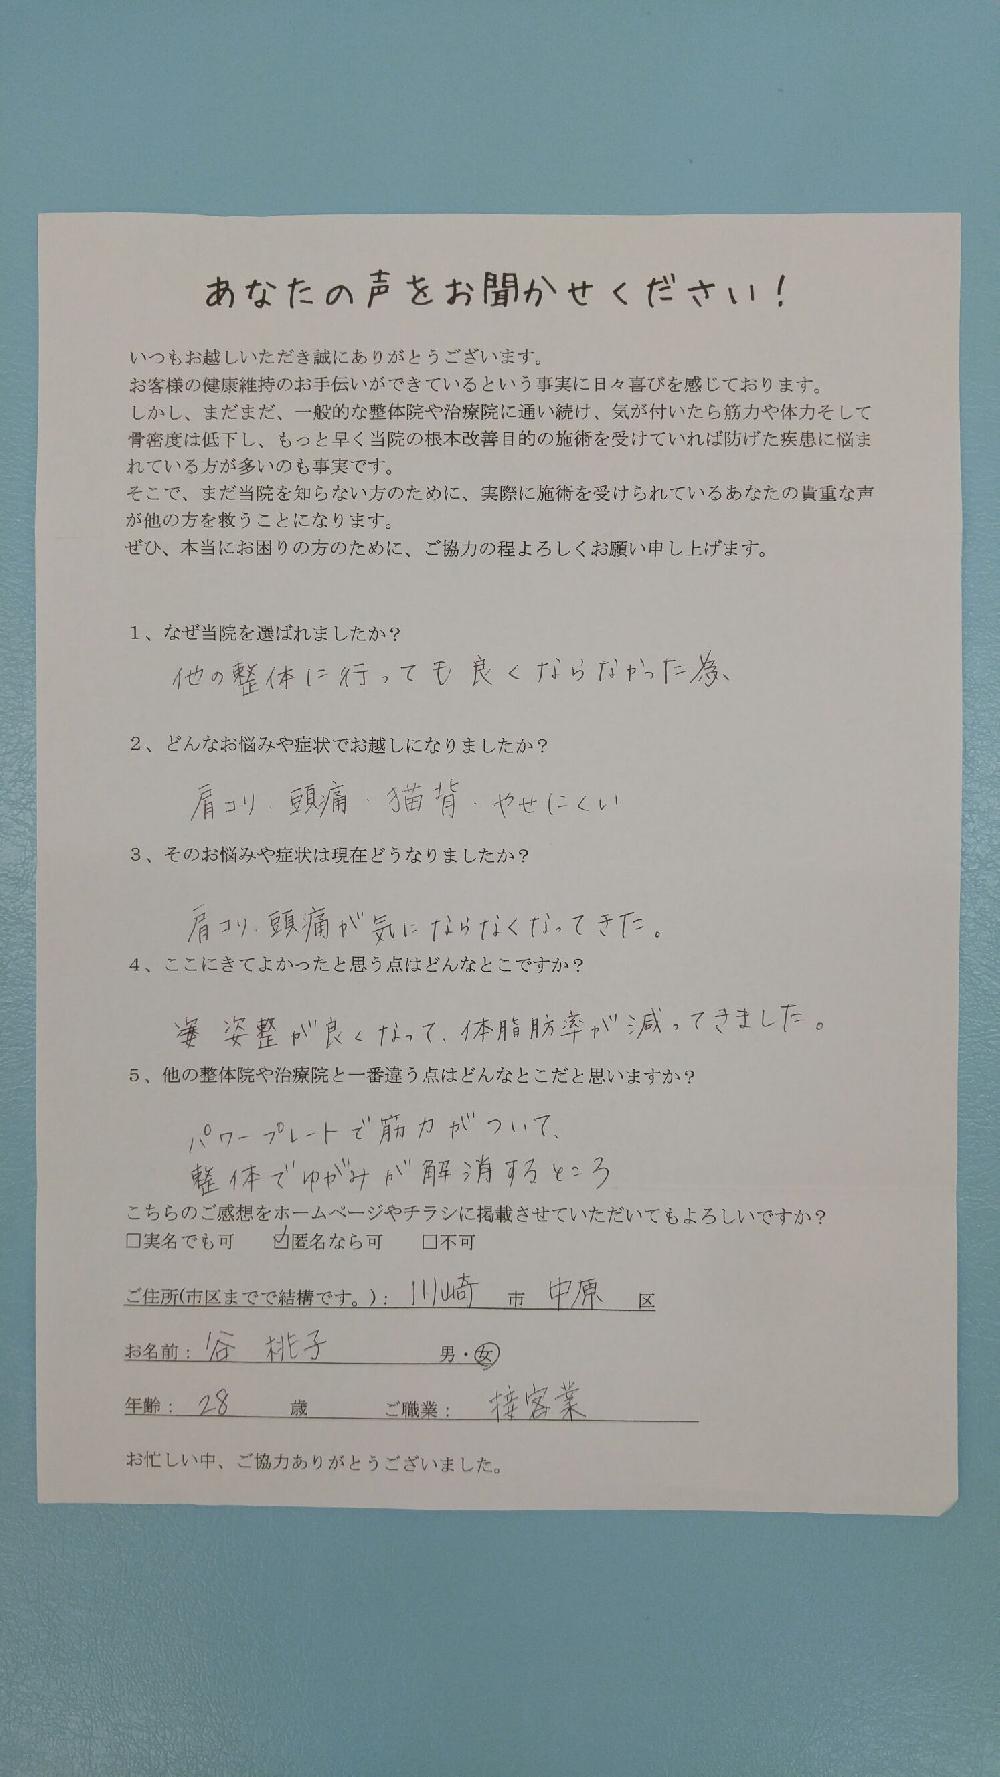 あなたの声をお聞かせください！
いつもお越しいただき誠にありがとうございます。
お客様の健康維持のお手伝いができているという事実に日々喜びを感じております。
しかし、まだまだ、一般的な整体院や治療院に通い続け、気が付いたら筋力や体力そして
骨密度は低下し、もっと早く当院の根本改善目的の施術を受けていれば防げた疾患に悩ま
れている方が多いのも事実です。
そこで、まだ当院を知らない方のために、実際に施術を受けられているあなたの貴重な声
が他の方を救うことになります。
ぜひ、本当にお困りの方のために、ご協力の程よろしくお願い申し上げます。
１、なぜ当院を選ばれましたか？
他の整体に行っても良くならなかった為、
２、どんなお悩みや症状でお越しになりましたか？
肩コリ・頭痛・猫背・やせにくい
３、そのお悩みや症状は現在どうなりましたか？
肩コリ、頭痛が気にならなくなってきた。
４、ここにきてよかったと思う点はどんなとこですか？
姿整が良くなって、体脂肪率が減ってきました。
５、他の整体院や治療院と一番違う点はどんなとこだと思いますか？
パワープレートで筋力がついて、
整体でゆがみが解消するところ
こちらのご感想をホームページやチラシに掲載させていただいてもよろしいですか？
□実名でも可 ☑匿名なら可 □不可
ご住所(市区までで結構です。)： 川崎 市 中原 区
お名前： 谷 桃子 男・女
年齢： 28 歳 ご職業： 接客業
お忙しい中、ご協力ありがとうございました。